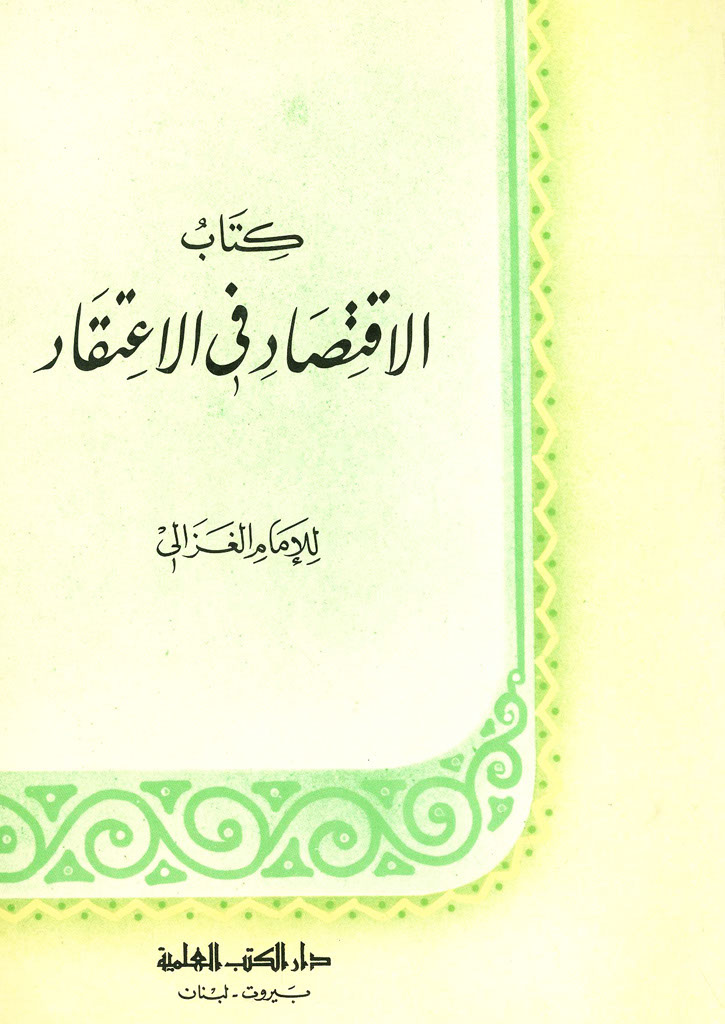 كِتَابُ
الاقتِصَادِ في الاعتِقَاد
لِلإمَامِ الغَزَالي
دار الكتب العلمية
بَيروت - لبنان